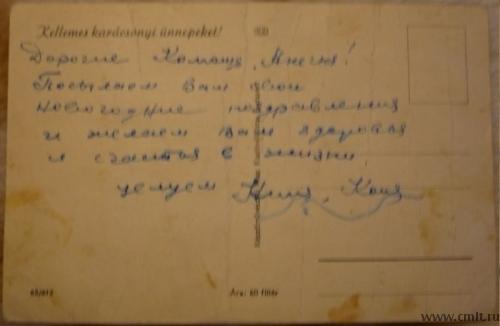 Kellemes karácsonyi ünnepeket!
Дорогие
Посылаем Вам свои
новогодние поздравления
и желаем Вам здоровья
и счастья в жизни
целуем Коля
65/612
Ára: 60 fillér
www.cmlt.ru